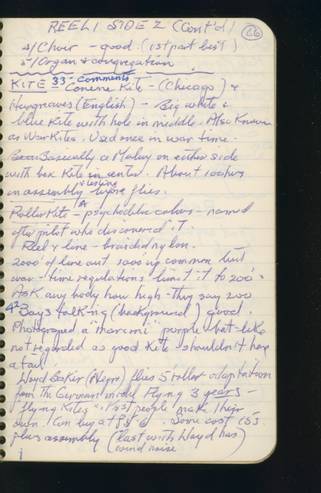 REEL 1 SIDE 2 (Cont'd) 26
4/ Choir - good. (1st part best)
5/ Organ & congregation
KITE 33- comments
Kite - (Chicago) &
Hargreaves (English) - Big white &
blue Kite with hole in middle. Also Known
as War Kites. Used once in war time.
Basically a Malay on either side
with box Kite in center. About 10 chrs
in assembly
Roller Kite - psychedelic colors - named
after pilot who discovered it.
Reel & line - braided nylon.
2000' of line out 1000 is common but
war-time regulations limit it to 200'.
Ask any body how high - they say 200
42 Boys talking (background) good.
Photographed a "marconi" purple bat-like
not regarded as good Kite - shouldn't have
a tail.
Wayd Baker flies 5 roller adaptation
from the German model. Flying 3 years -
flying Kites. Most people make their
own. Can buy at Some cost 15$
plus assembly (last with Wayd has)
wind noise